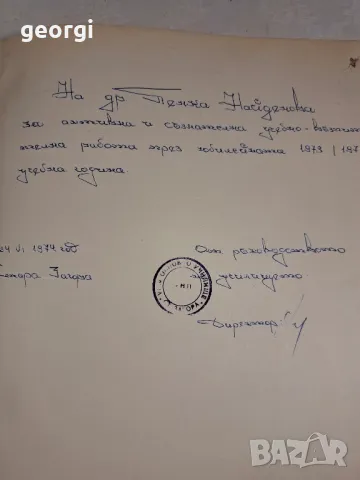 georgi
На др Пенка Найденова
за активна и съзнателна учебно-възпит
телна работа през юбилейната 1973 / 197
учебна година.
24 VI 1974 год
Стара Загора
От ръководството
на училището
УЧИЛИЩЕ
ЗАГОРА
Директор:
BAZAR
bg